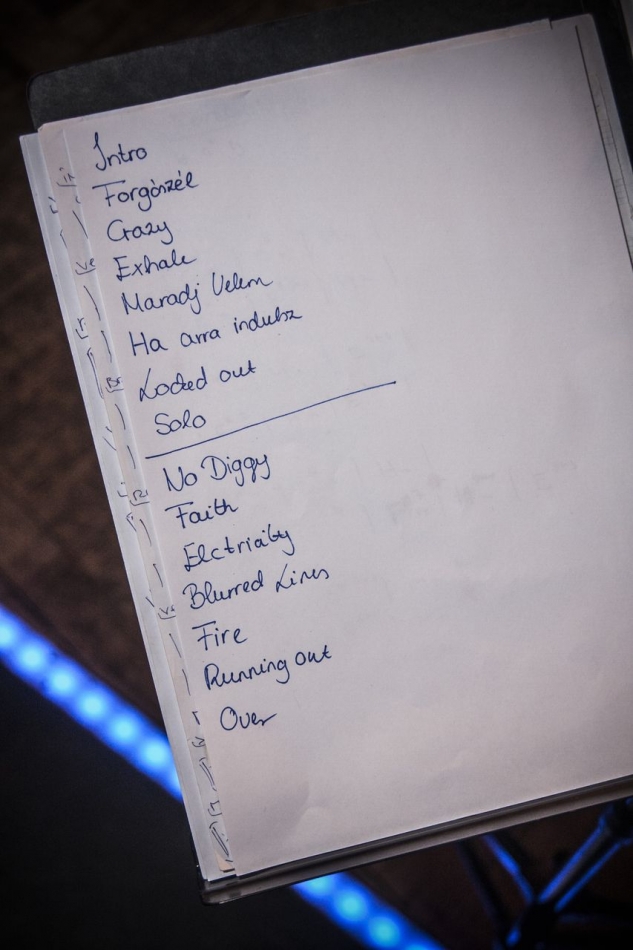 Intro
Forgószél
Crazy
Exhale
Maradj Velem
Ha arra indulsz
Locked out
Solo
No Diggy
Faith
Elctriaity
Blurred Lines
Fire
Running out
Over